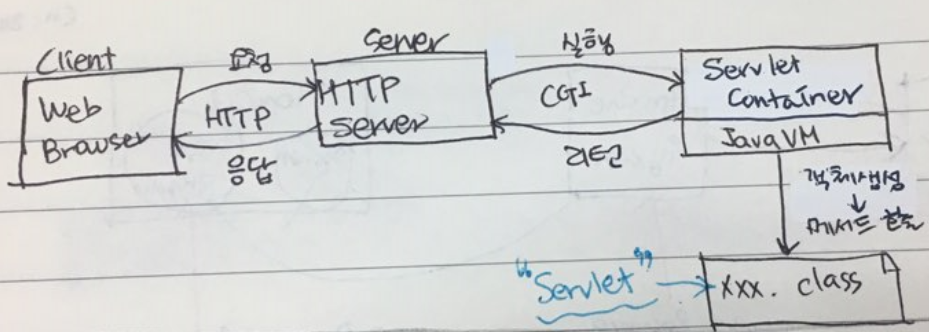 Client
Web
Browser
요청
HTTP
응답
Server
HTTP
Server
실행
CGI
리턴
Servlet
Container
Java VM
객체생성
↓
메서드 호출
"Servlet" →
xxx. class